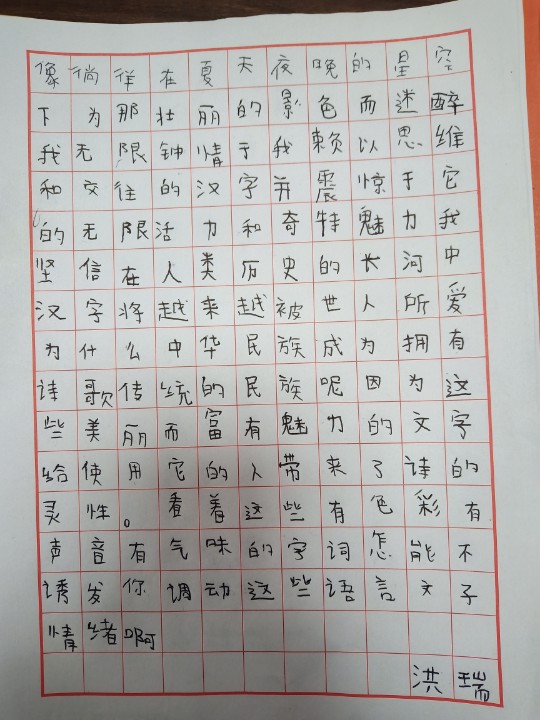 像徜徉在夏天夜晚的星空
下为那壮丽的影色而迷醉
我无限钟情于我赖以思维
和交往的汉字并震惊于它
的无限活力和奇特魅力我
坚信在人类历史的长河中
汉字将越来越被世人所爱
为什么中华民族成为拥有
诗歌传统的民族呢因为这
些美丽而富有魅力的文字
给使用它的人带来了诗的
灵性。看着这些有色彩有
声音有气味的字词怎能不
诱发你调动这些语言文子
情绪啊
洪瑞